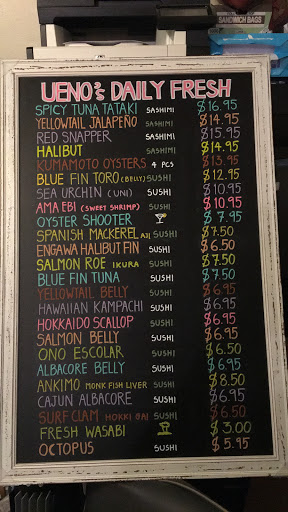 SANDWICH BAGS
UENO'S DAILY FRESH
SPICY TUNA TATAKI SASHIMI $16.95
YELLOWTAIL JALAPEÑO SASHIMI $14.95
RED SNAPPER SASHIMI $15.95
HALIBUT SASHIMI $14.95
KUMAMOTO OYSTERS 4 PCS $13.95
BLUE FIN TORO (BELLY) SUSHI $12.95
SEA URCHIN (UNI) SUSHI $10.95
AMA EBI (SWEET SHRIMP) SUSHI $10.95
OYSTER SHOOTER $7.95
SPANISH MACKEREL AJI SUSHI $7.50
ENGAWA HALIBUT FIN SUSHI $6.50
SALMON ROE IKURA SUSHI $7.50
BLUE FIN TUNA SUSHI $7.50
YELLOWTAIL BELLY SUSHI $6.95
HAWAIIAN KAMPACHI SUSHI $6.95
HOKKAIDO SCALLOP SUSHI $6.95
SALMON BELLY SUSHI $6.95
ONO ESCOLAR SUSHI $6.50
ALBACORE BELLY SUSHI $6.95
ANKIMO MONK FISH LIVER SUSHI $8.50
CAJUN ALBACORE SUSHI $6.95
SURF CLAM HOKKI GAI SUSHI $6.50
FRESH WASABI $3.00
OCTOPUS SUSHI $5.95